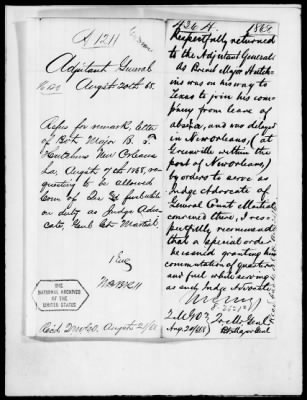 A 1211
Adjutant General
August 20th 68.
Asks for remark, letter
of Bvt Major B. T.
Hutchins New Orleans
La, August 7th 1868, re-
questing to be allowed
com of Qrs & fuel while
on duty as Judge Advo-
cate, Genl Ct Martial.
1 Enc
THE
NATIONAL ARCHIVES
OF THE
UNITED STATES
Recd August 21/68
1868
Respectfully returned
to the Adjutant General:
As Brevet Major Hutch-
ins was on his way to
Texas to join his com-
pany from leave of
absence, and was delayed
in New Orleans, (at
Greenville within the
post of New Orleans,)
by orders to serve as
Judge Advocate of
General Court Martial
convened there, I res-
pectfully recommend
that a special order
be issued granting him
commutation of quarters
and fuel while serving
as such Judge Advocate.
Q M G O
Aug. 24/68
Bt Major Genl